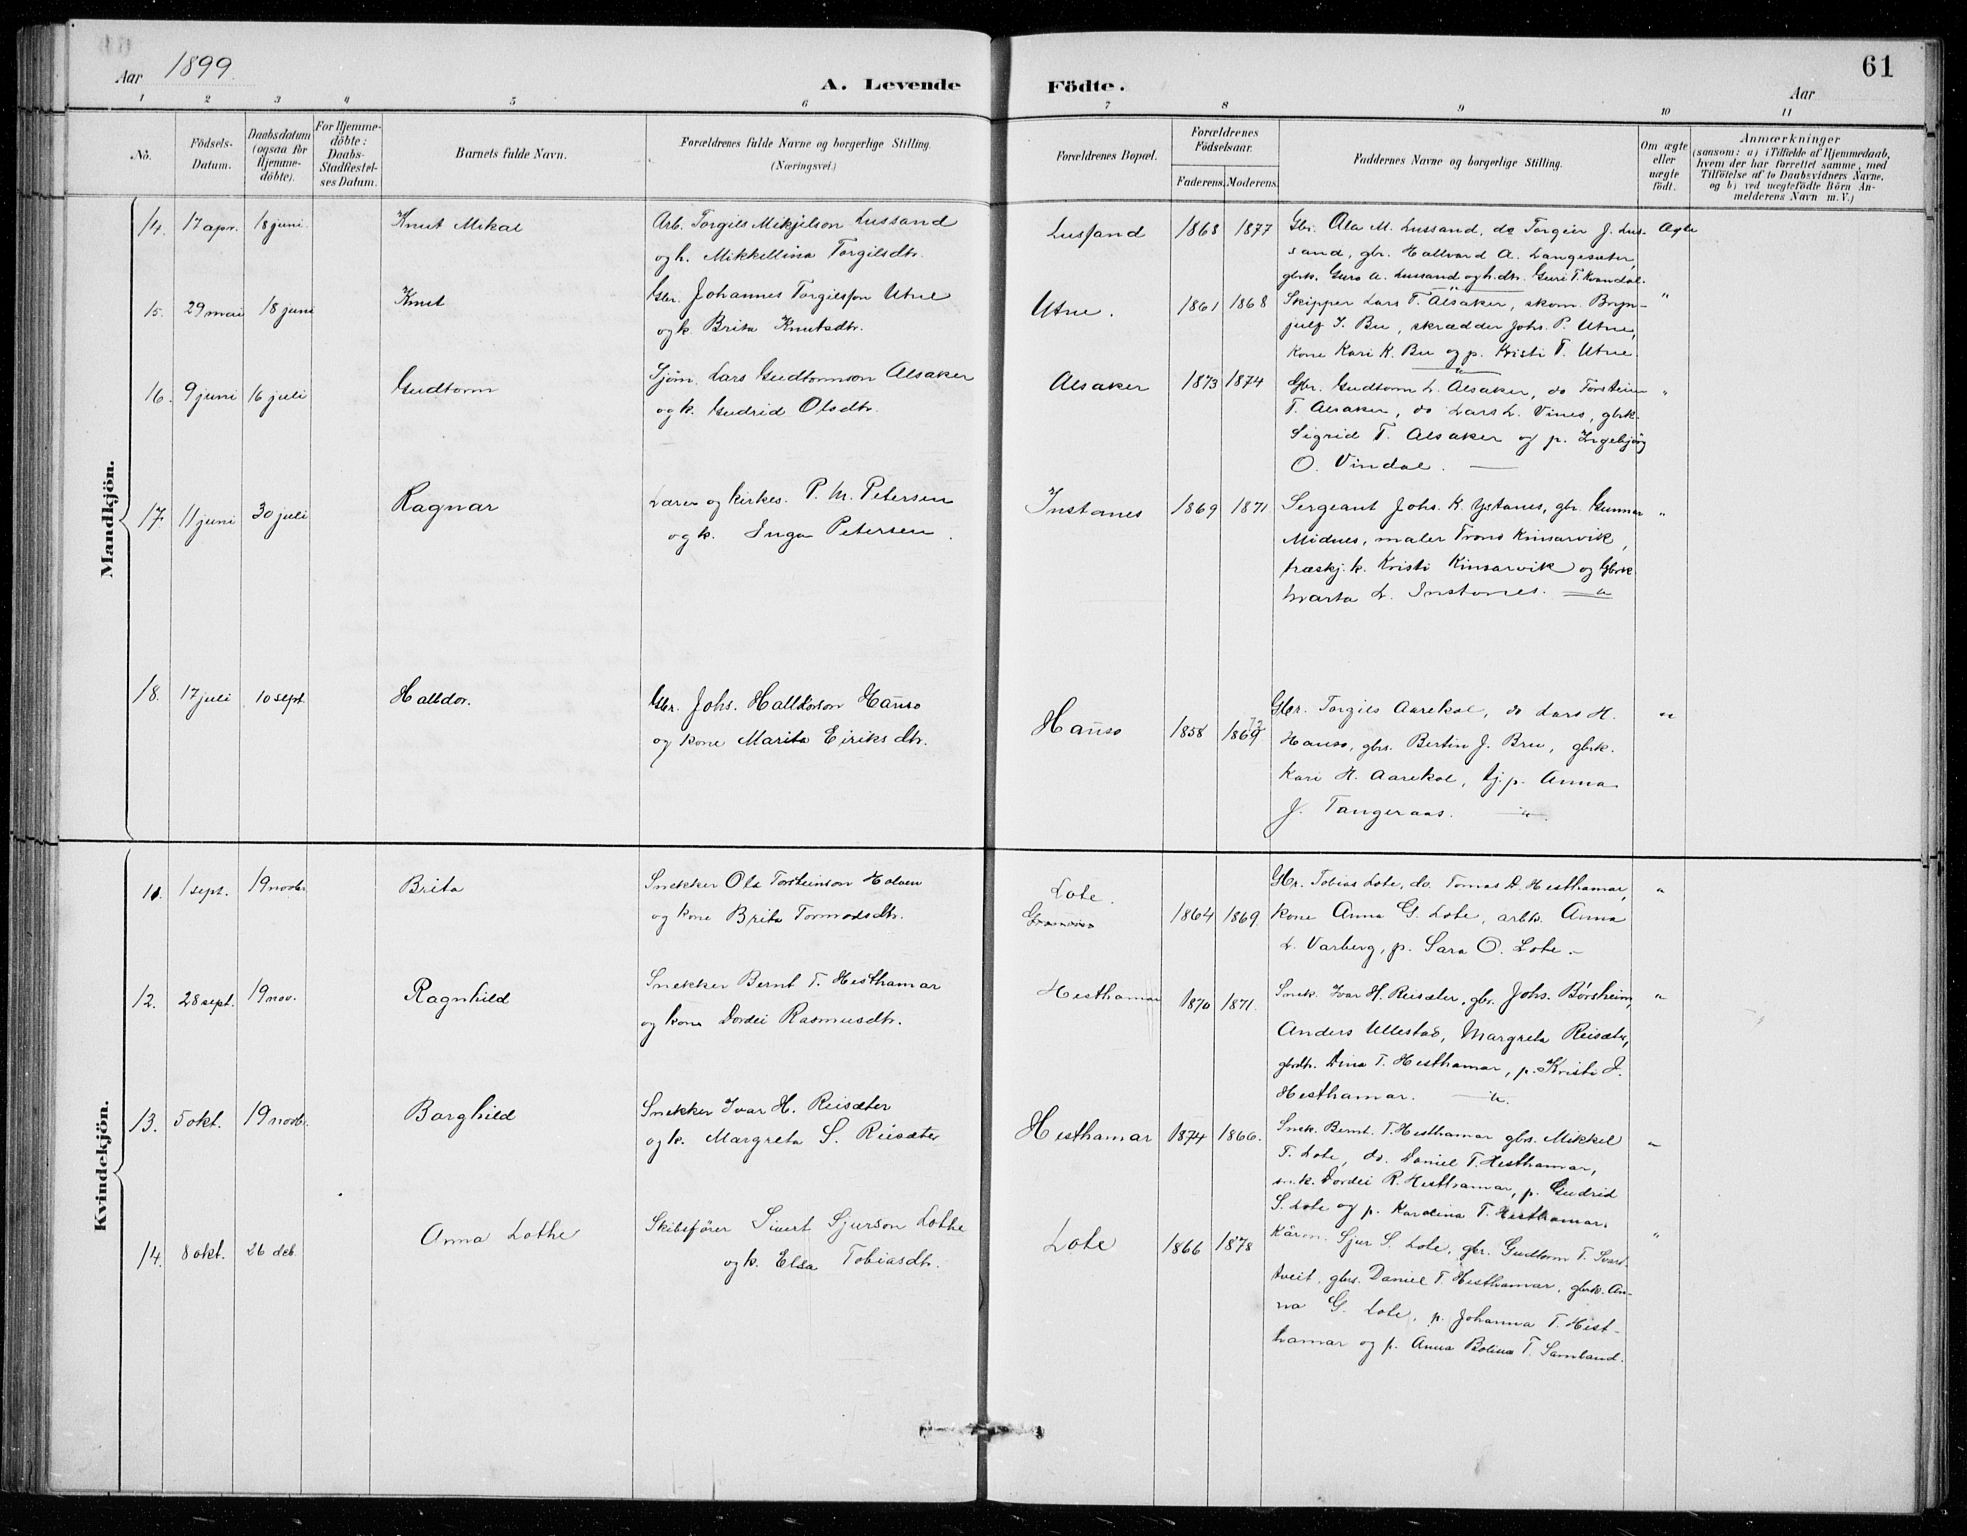 Aar 1899.
A. Levende Födte.
Aar
61
1 2 3 4 5 6 7 8 9 10 11
No.
Födsels-Datum.
Daabsdatum (ogsaa for Hjemme-döbte).
For Hjemme-döbte: Daabs-Stadfæstel-ses Datum.
Barnets fulde Navn.
Forældrenes fulde Navne og borgerlige Stilling. (Næringsvei.)
Forældrenes Bopæl.
Forældrenes Födselsaar.
Faderens. Moderens.
Faddernes Navne og borgerlige Stilling.
Om ægte eller uægte födt.
Anmærkninger
(saasom: a) i Tilfælde af Hjemmedaab,
hvem der har forrettet samme, med
Tilföielse af to Daabsvidners Navne,
og b) ved uægtefödte Börn An-
melderens Navn m. V.)
Mandkjön.
14. 17 apr. 18 juni. Knut Mikal
Arb. Torgils Mikjelson Lussand
og h. Mikkellina Torgilsdtr.
Lussand 1868 1877
Gbr. Ola M. Lussand, do Torgeir J. Lus-
sand, gbr. Hallvard A. Langesæter,
gbrk. Guro A. Lussand og h.dtr. Guri T. Kvandal.
Ægte
15. 29 mai 18 juni Knut
Gbr. Johannes Torgilsson Utne
og k. Brita Knutsdtr.
Utne. 1861 1868
Skipper Lars T. Alsaker, skom. Bryn-
julf J. Bu, skrædder Johs. P. Utne,
kone Kari K. Bu og p. Kristi T. Utne.
"
16. 9 juni 16 juli Gudtorm
Sjöm. Lars Gudtormson Alsaker
og k. Gudrid Olsdtr.
Alsaker 1873 1874
Gbr. Gudtorm L. Alsaker, do Torstein
T. Alsaker, do Lars L. Vines, gbrk.
Sigrid T. Alsaker og p. Ingebjörg
O. Vindal.
"
17. 11 juni 30 juli Ragnar
Lærer og kirkes. P. M. Petersen
og k. Inga Petersen.
Instanes 1869 1871
Sergeant Johs. K. Ystanes, gbr. Gunnar
Midnes, maler Trond Kinsarvik,
træskj. k. Kristi Kinsarvik og Gbrk
Marta L. Instanes.
"
18. 17 juli 10 sept Halldor.
Gbr. Johs. Halldorson Hauso
og kone Marita Eiriksdtr.
Hauso 1858 1869
Gbr. Torgils Aarekol, do Lars H.
Hauso, gbrs. Bertin J. Bru, gbrk.
Kari H. Aarekol, tj. p. Anna
J. Tangeraas.
"
Kvindekjön.
11. 1 sept. 19 novbr. Brita
Snekker Ola Torsteinson Holven
og kone Brita Tormodsdtr.
Lote.
1864 1869.
Gbr. Tobias Lote, do. Tomas D. Hesthamar,
kone Anna G. Lote, arbk. Anna
L. Varberg, p. Sara O. Lote.
"
12. 28 sept. 19 nov. Ragnhild
Snekker Bernt T. Hesthamar
og kone Dordei Rasmusdtr.
Hesthamar 1870 1871.
Snek. Ivar H. Reisæter, gbr. Johs. Börsheim,
Anders Ullestad, Margreta Reisæter,
gbrdtr. Dina T. Hesthamar, p. Kristi J.
Hesthamar.
"
13. 5 okt. 19 novbr. Borghild
Snekker Ivar H. Reisæter
og k. Margreta S. Reisæter
Hesthamar 1874 1866.
Snek. Bernt T. Hesthamar gbrs. Mikkel
T. Lote, do. Daniel T. Hesthamar,
sn.k. Dordei R. Hesthamar, p. Gudrid
S. Lote og p. Karolina T. Hesthamar.
"
14. 8 okt. 26 deb. Anna Lothe
Skibsförer Sivert Sjurson Lothe
og k. Elsa Tobiasdtr.
Lote 1866 1878
Kårm. Sjur S. Lote, gbr. Gudtorm T. Svart-
tveit, gbrs. Daniel T. Hesthamar, gbrk. An-
na G. Lote, p. Johanna T. Hest-
hamar og p. Anna Bolina T. Samland.
"